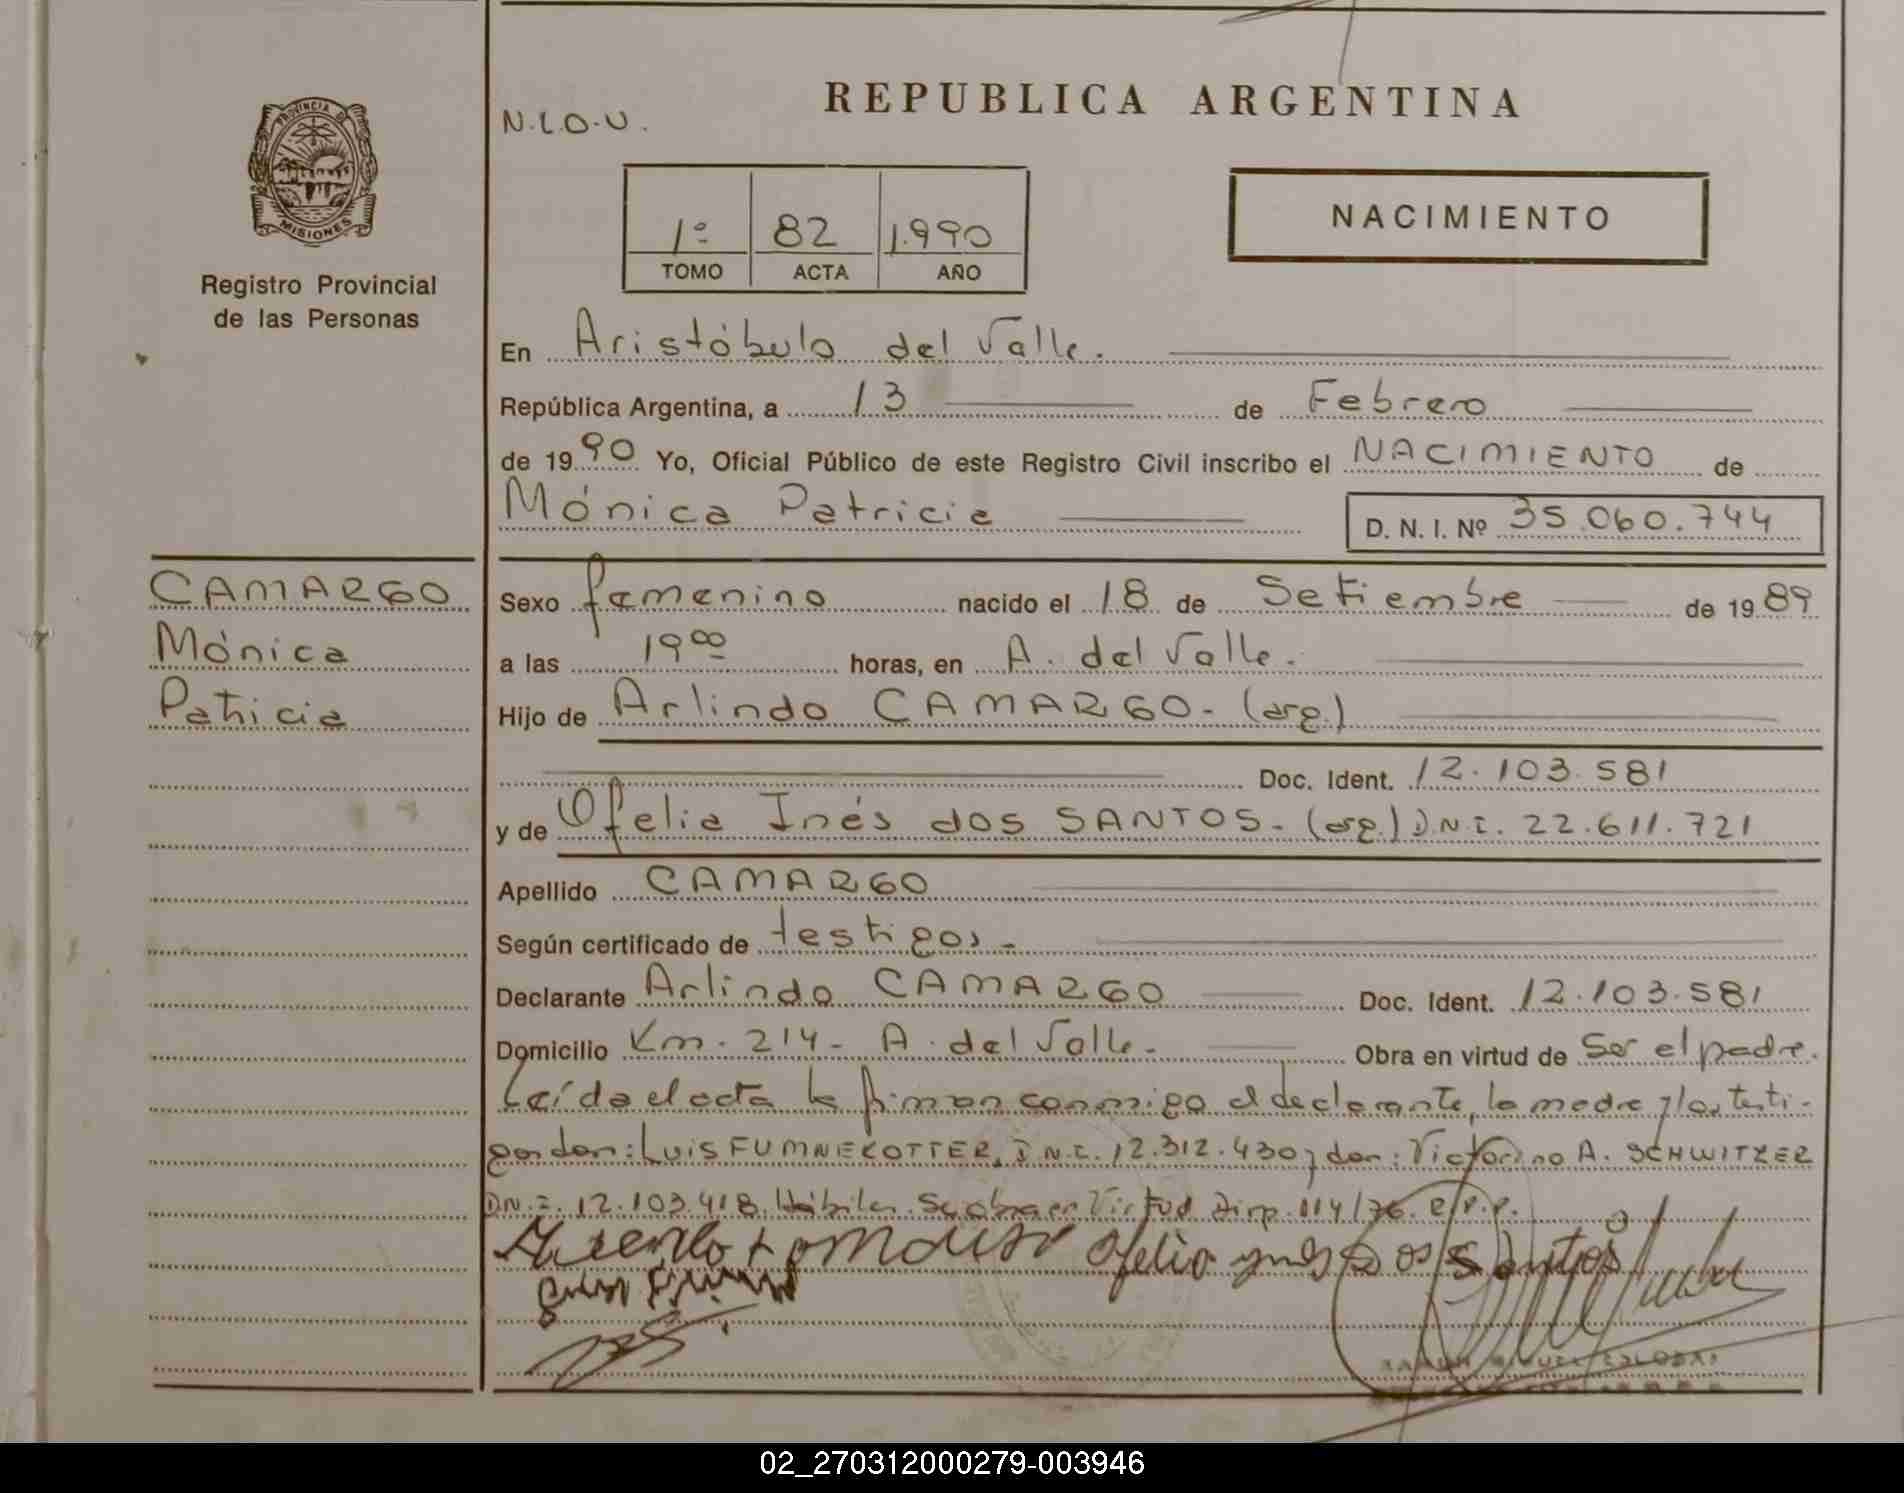 REPUBLICA ARGENTINA
N.L.O.U.
PROVINCIA DE
MISIONES
Registro Provincial
de las Personas
1º 82 1.990
TOMO ACTA AÑO
NACIMIENTO
En Aristóbulo del Valle.
República Argentina, a 13 de Febrero
de 1990 Yo, Oficial Público de este Registro Civil inscribo el NACIMIENTO de
Mónica Patricia D. N. I. Nº 35.060.744
CAMARGO
Mónica
Patricia
Sexo femenino nacido el 18 de Setiembre de 1989
a las 19 00 horas, en A. del Valle.
Hijo de Arlindo CAMARGO- (arg.)
Doc. Ident. 12.103.581
y de Ofelia Inés dos SANTOS- (arg.) D.N.I. 22.611.721
Apellido CAMARGO
Según certificado de testigos-
Declarante Arlindo CAMARGO Doc. Ident. 12.103.581
Domicilio Km. 214- A. del Valle- Obra en virtud de Ser el padre.
Leída el acta la firman conmigo el declarante, la madre y los testi-
gos don: Luis FUMNEKOTTER, D.N.I. 12.312.430 y don: Victorino A. SCHWITZER
D.N.I. 12.103.418. Hábiles. Se obra en Virtud Disp. 114/76. R.P.P.
Ofelia ynes Dos Santos
02_270312000279-003946